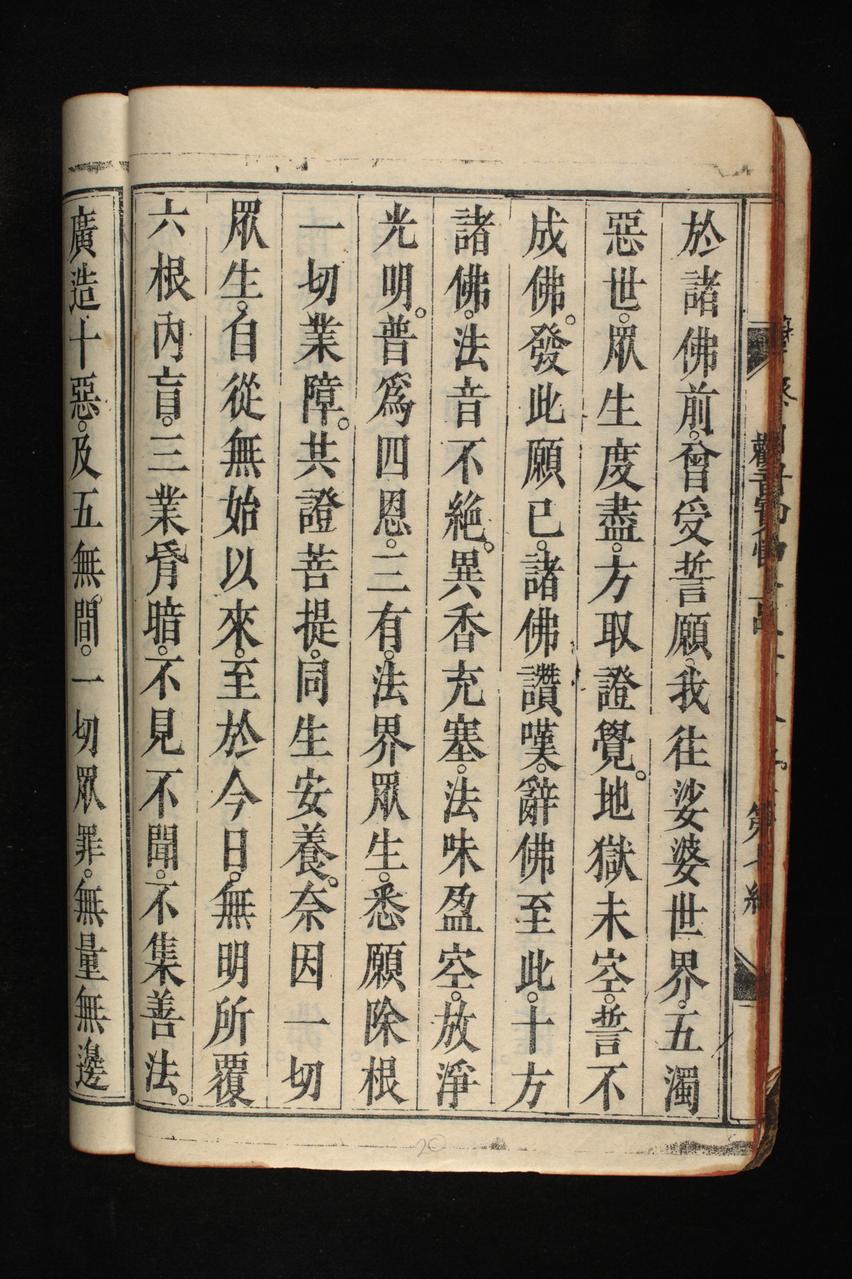 於諸佛前。曾受誓願。我往娑婆世界。五濁
惡世。眾生度盡。方取證覺。地獄未空。誓不
成佛。發此願已。諸佛讚嘆。辭佛至此。十方
諸佛。法音不絕。異香充塞。法味盈空。放淨
光明。普為四恩。三有。法界眾生。悉願除根
一切業障。共證菩提。同生安養。奈因一切
眾生。自從無始以來。至於今日。無明所覆
六根內盲。三業脊暗。不見不聞。不集善法。
廣造十惡。及五無間。一切眾罪。無量無邊